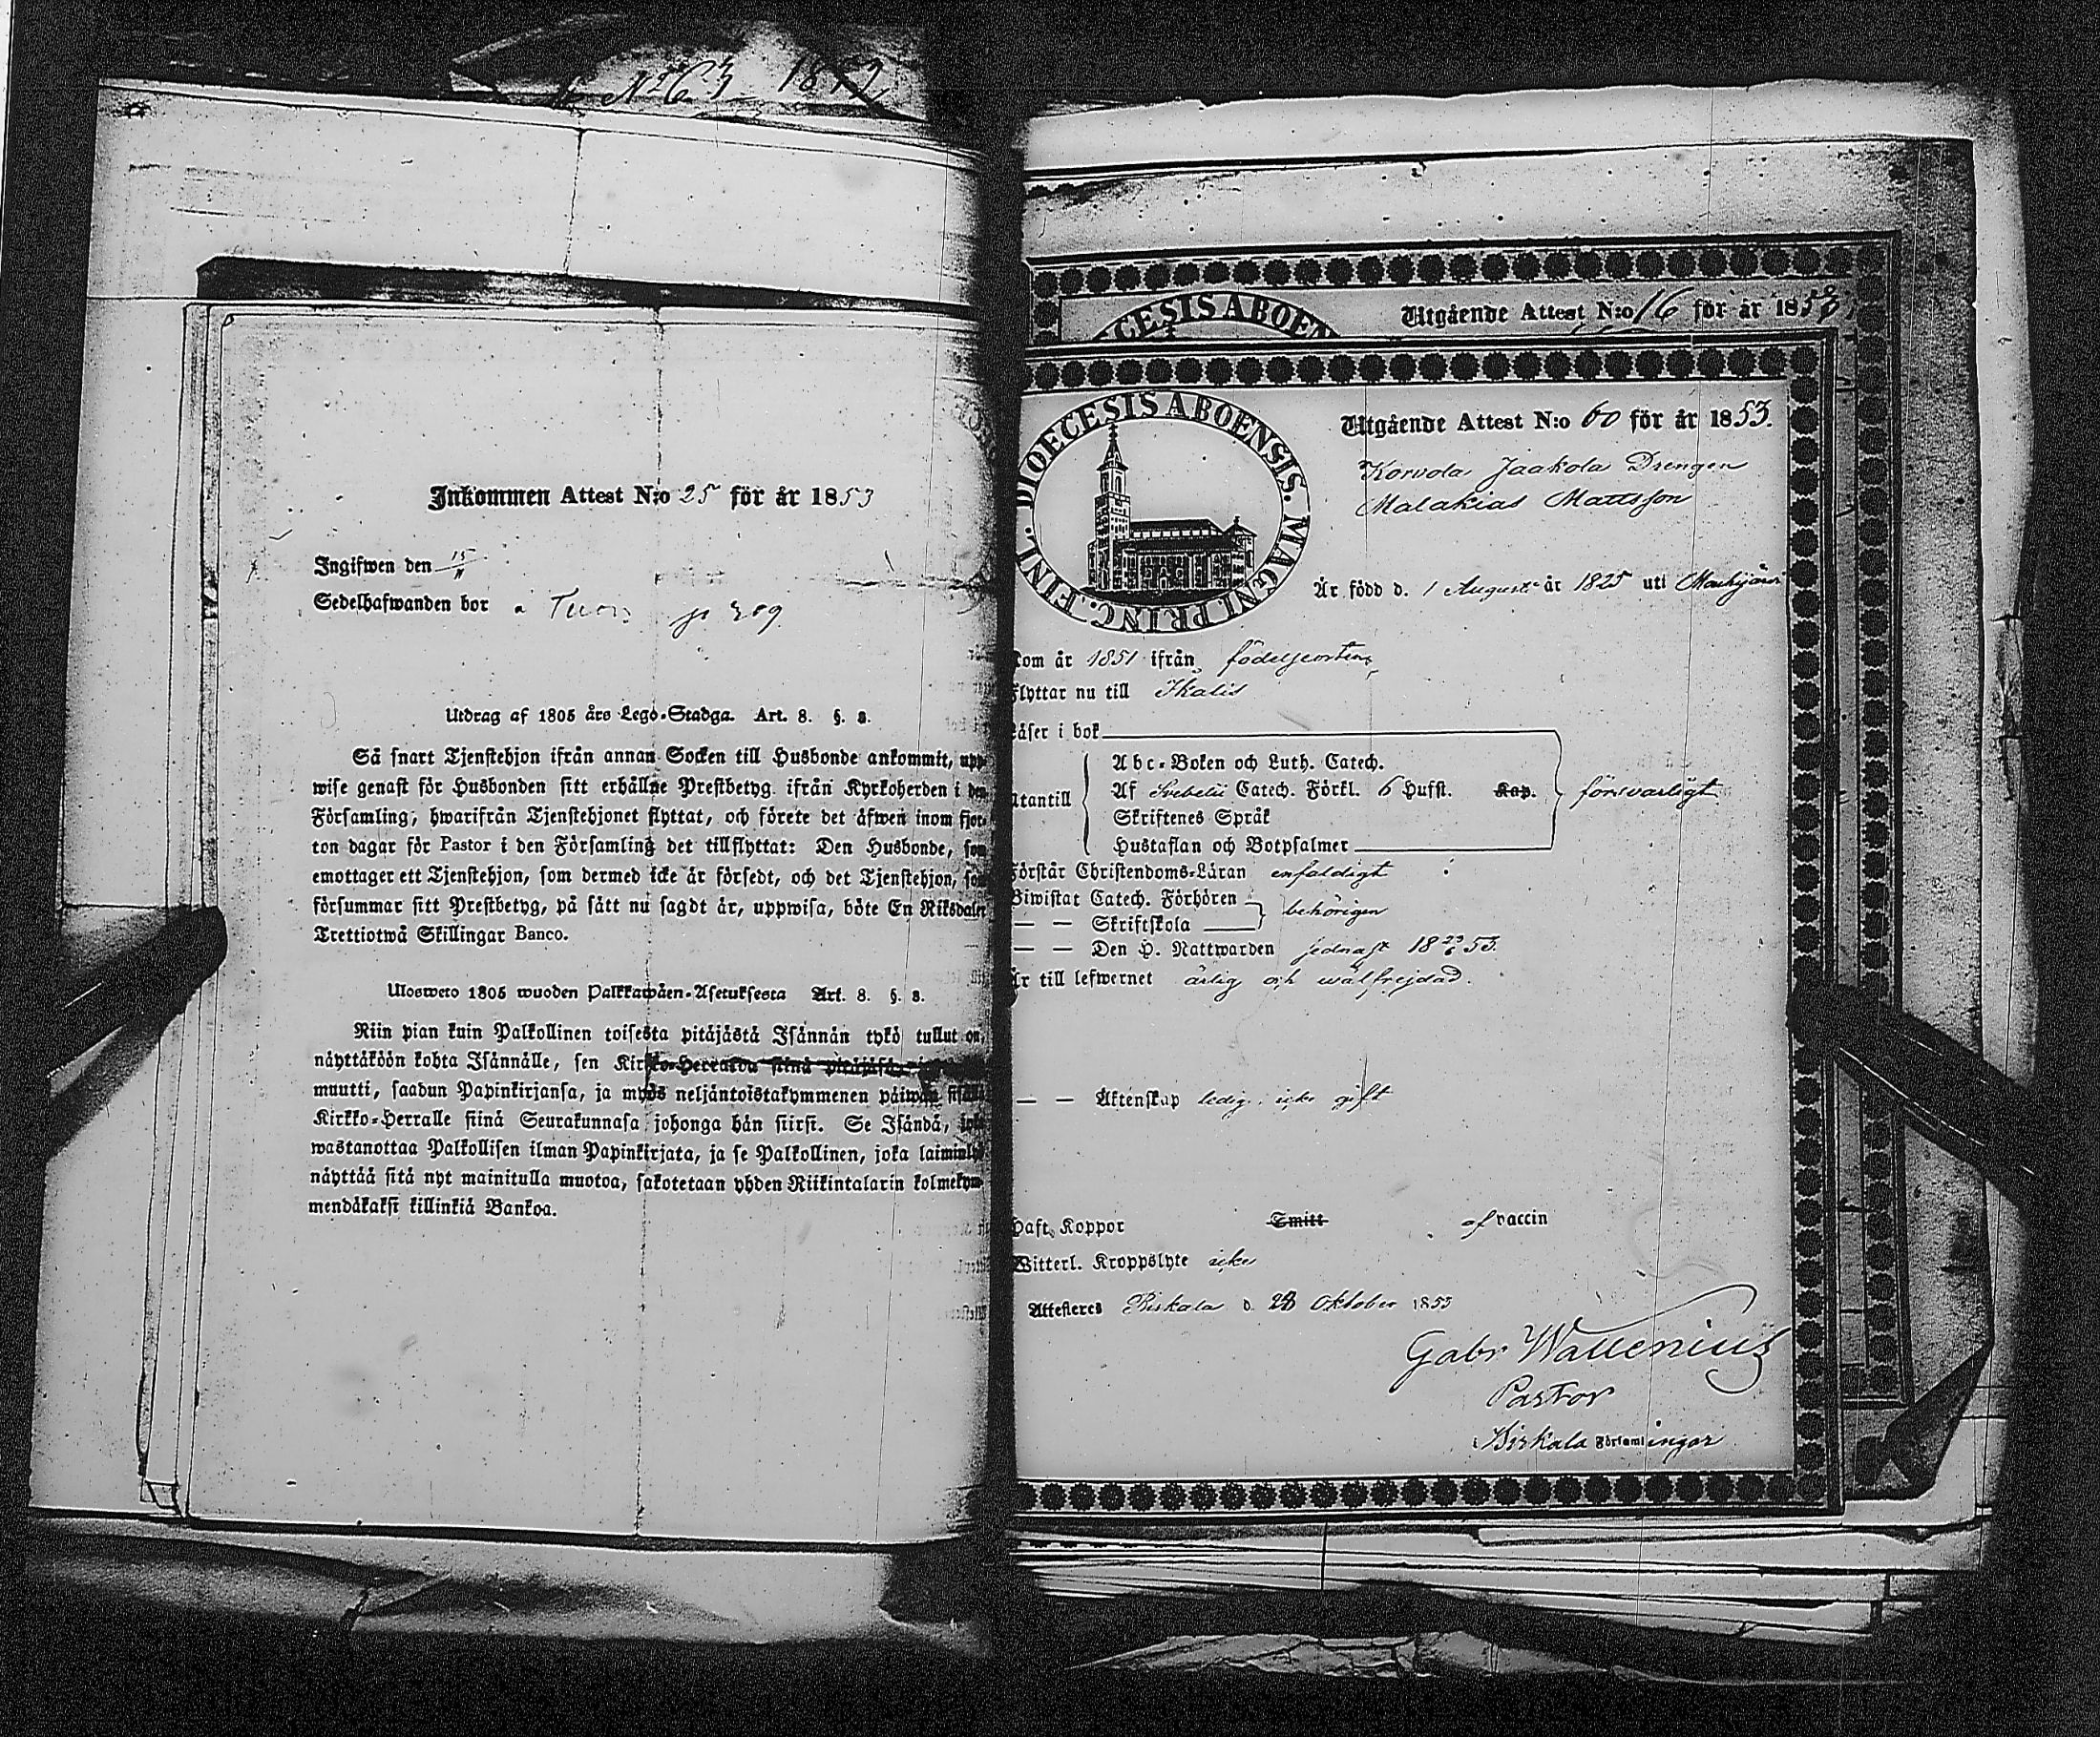 1852
Inkommen Attest N:o 25 för år 1853
Ingifwen den 15/11
Sedelhafwanden bor
Utdrag af 1805 års Lego-Stadga. Art. 8. §. 8.
Så snart Tjenstehjon ifrån annan Socken till Husbonde ankommit, upp-
wise genast för Husbonden sitt erhållne Prestbetyg ifrån Kyrkoherden i den
Församling, hwarifrån Tjenstehjonet flyttat, och förete det äfwen inom fjor-
ton dagar för Pastor i den Församling det tillflyttat: Den Husbonde, som
emottager ett Tjenstehjon, som dermed icke är försedt, och det Tjenstehjon, som
försummar sitt Prestbetyg, på sätt nu sagdt är, uppwisa, böte En Riksdaler
Trettiotwå Skillingar Banco.
Ulosweto 1805 wuoden Palkkawäen-Asetuksesta Art. 8. §. 8.
Niin pian kuin Palkollinen toisesta pitäjästä Isännän tykö tullut on,
näyttäköön kohta Isännälle, sen Kirkko-Herralda siinä pitäjäsä,
muutti, saadun Papinkirjansa, ja myös neljäntoistakymmenen päiwän sisällä
Kirkko-Herralle siinä Seurakunnasa johonga hän siirsi. Se Isändä, joka
wastanottaa Palkollisen ilman Papinkirjata, ja se Palkollinen, joka laiminlyö
näyttää sitä nyt mainitulla muotoa, sakotetaan yhden Riikintalarin kolmekym-
mendäkaksi killinkiä Bankoa.
DIOECESIS ABOEN
Utgående Attest N:o 16 för år 1853
DIOECESIS ABOENSIS. MAGNI. PRINC. FINL.
Utgående Attest N:o 60 för år 1853.
Korvola Jaakola Drengen
Malakias Mattsson
Är född d. 1 Augusti år 1825 uti Mouhijärvi
Kom år 1851 ifrån födelseorten
Flyttar nu till Ikalis
Läser i bok
Utantill
Abc-Boken och Luth. Catech.
Af Svebelii Catech. Förkl. 6 Hufst. Kap.
Skriftenes Språk
Hustaflan och Botpsalmer
försvarligt
Förstår Christendoms-Läran enfaldigt
Biwistat Catech. Förhören
— — Skriftskola
behörigen
— — Den H. Nattwarden sednast 18 23/6 53.
Är till lefwernet ärlig och wälfrejdad.
— — Äktenskap ledig, icke gift
Haft Koppor Smitt af vaccin
Witterl. Kroppslyte icke
Attesteres Birkala d. 28 Oktober 1853
Gabr Wallenius
Pastor
i Birkala Församlingar